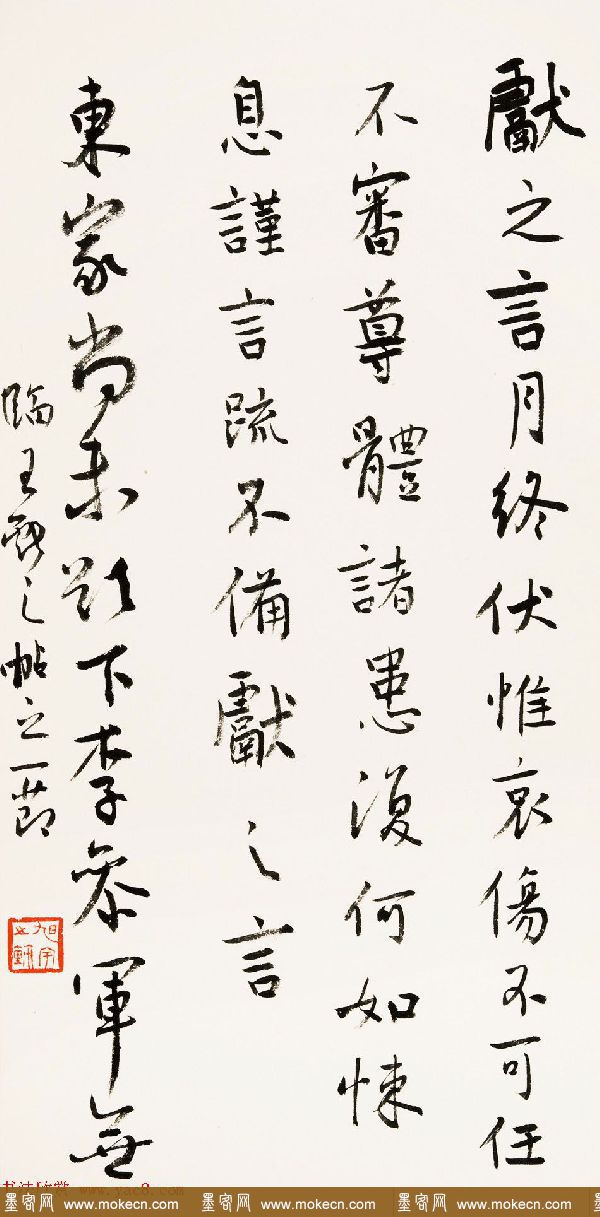 獻之言月終伏惟哀傷不可任
不審尊體諸患復何如悚
息謹言疏不備獻之言
東家尚未 下李參軍無
臨王獻之帖之一節
旭宇
書法欣賞 www.yac8.com
墨客网 www.mokecn.com 墨客网 www.mokecn.com 墨客网 www.mokecn.com